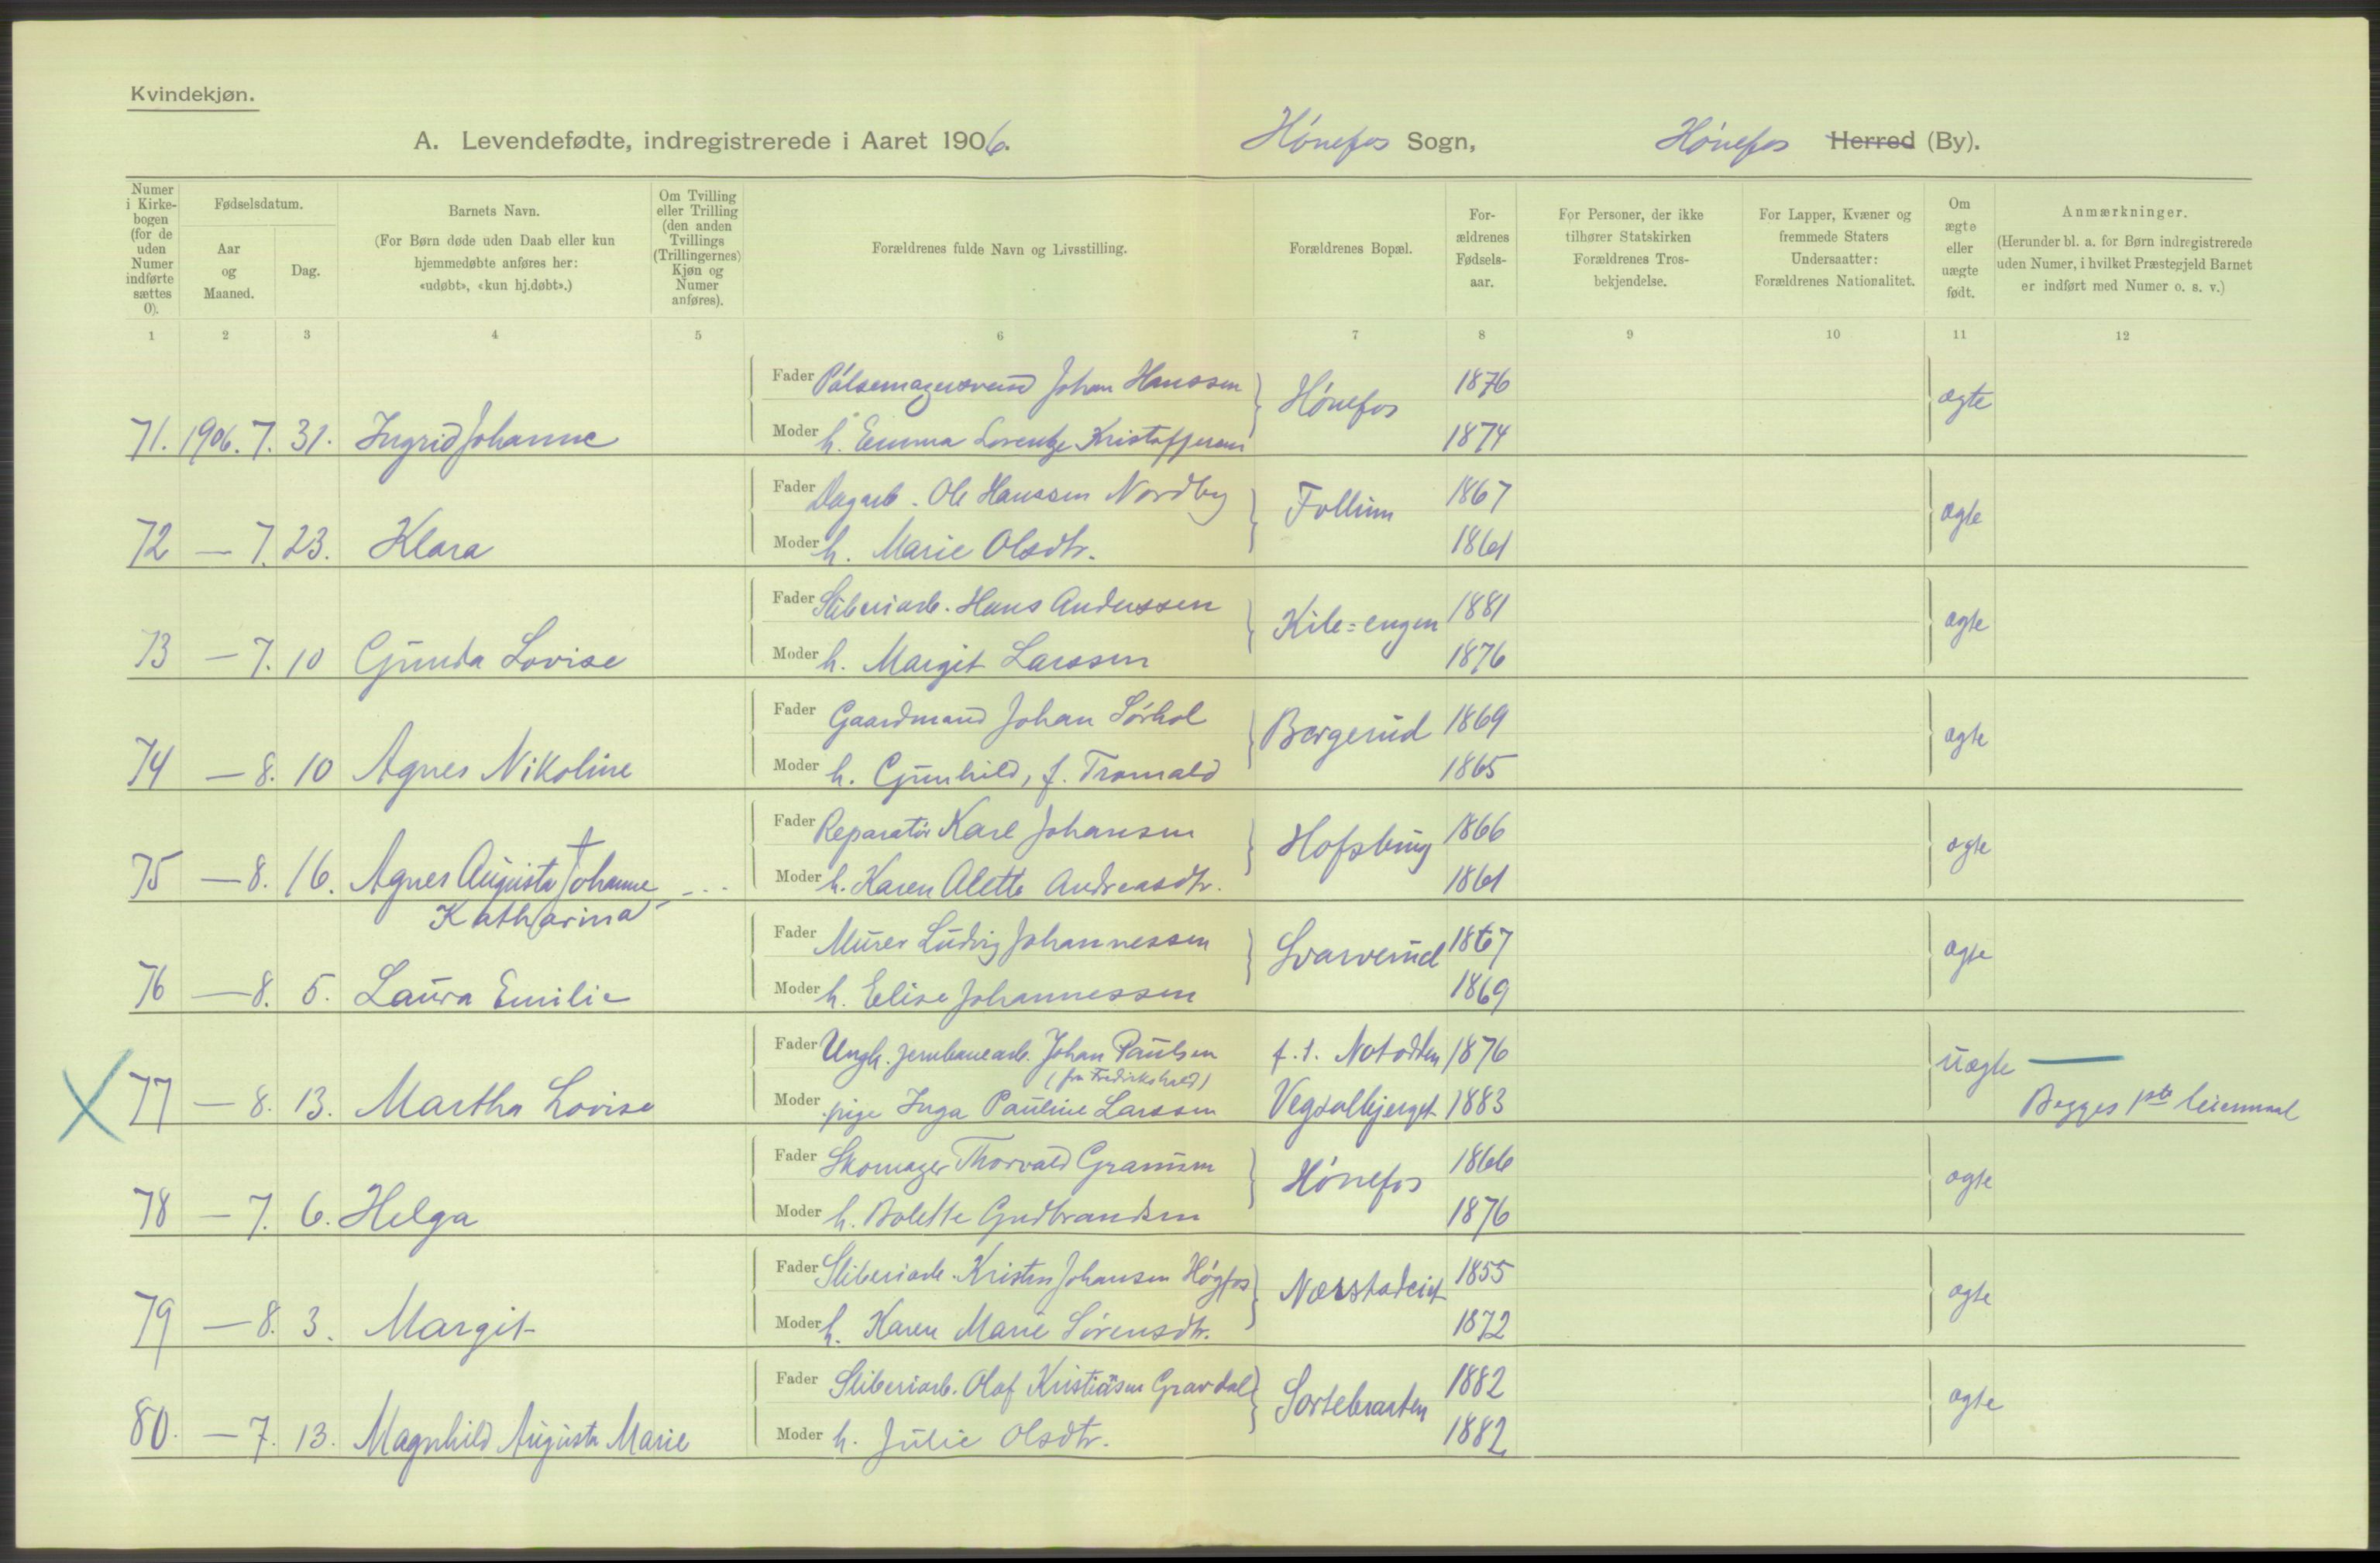 Kvindekjøn.
A. Levendefødte, indregistrerede i Aaret 1906. Hónefos Sogn, Hónefos Herred (By).
Numer i Kirkebogen (for de uden Numer indførte sættes 0).
Fødselsdatum.
Aar og Maaned.
Dag.
Barnets Navn.
(For Børn døde uden Daab eller kun hjemmedøbte anføres her: «udøbt», «kun hj.døbt».)
Om Tvilling eller Trilling (den anden Tvillings (Trillingernes) Kjøn og Numer anføres).
Forældrenes fulde Navn og Livsstilling.
Forældrenes Bopæl.
For-ældrenes Fødsels-aar.
For Personer, der ikke tilhører Statskirken Forældrenes Tros-bekjendelse.
For Lapper, Kvæner og fremmede Staters Undersaatter: Forældrenes Nationalitet.
Om ægte eller uægte født.
Anmærkninger.
(Herunder bl. a. for Børn indregistrerede uden Numer, i hvilket Præstegjeld Barnet er indført med Numer o. s. v.)
1 2 3 4 5 6 7 8 9 10 11 12
Fader Pólsemagersvend Johan Hanssen 1876
71. 1906. 7. 31. Ingrid Johanne Moder h. Emma Lorentze Kristoffersen Hónefos 1874 ægte
Fader Dagarb. Ole Hanssen Nordby 1867
72 — 7. 23. Klara Moder h. Marie Olsdtr. Follum 1861 ægte
Fader Sliberiarb. Hans Anderssen 1881
73 — 7. 10 Gunda Lovise Moder h. Margit Larssen Kile=engen 1876 ægte
Fader Gaardmand Johan Sórhol 1869
74 — 8. 10 Agnes Nikoline Moder h. Gunhild, f. Tromald Borgerud 1865 ægte
Fader Reparatør Karl Johansen 1866
75 — 8. 16. Agnes Augusta Johanne Moder h. Karen Alette Andreasdtr. Hofsbrug 1861 ægte
Katharina
Fader Murer Ludvig Johannessen 1867
76 — 8. 5. Laura Emilie Moder h. Elise Johannessen Svarverud 1869 ægte
Fader Ungk. jernbanearb. Johan Paulsen f. t. Notodden 1876
(fra Fredrikshald)
77 — 8. 13. Martha Lovise Moder pige Inga Pauline Larssen 1883 uægte — Begges 1ste leiermaal
Fader Skomager Thorvald Granum 1866
78 — 7. 6. Helga Moder h. Bolette Gudbrandsen Hónefos 1876 ægte
Fader Sliberiarb. Kristen Johansen Høgfos 1855
79 — 8. 3. Margit Moder h. Karen Marie Sörensdtr. Nærstadeiet 1872 ægte
Fader Sliberiarb. Olaf Kristiansen Gravdal 1882
80. — 7. 13. Magnhild Augusta Marie Moder h. Julie Olsdtr. Sortebraaten 1882 ægte